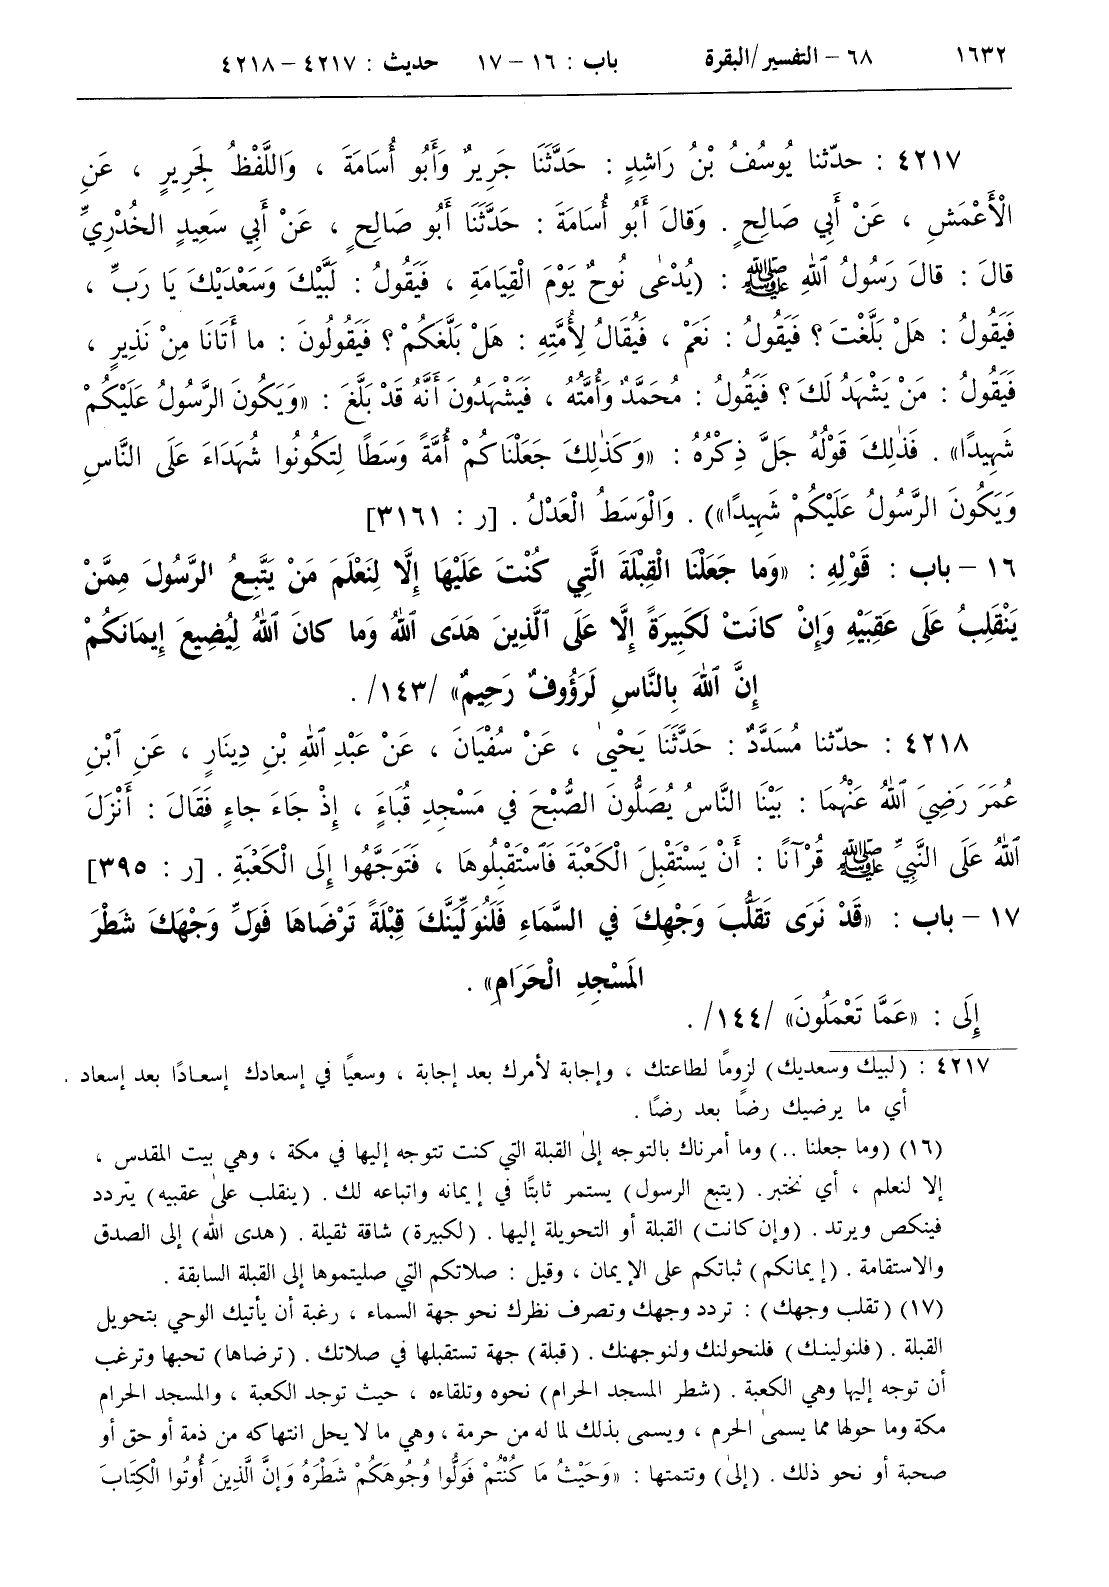 ١٦٣٢ ٦٨ - التفسير/البقرة باب : ١٦ - ١٧ حديث : ٤٢١٧ - ٤٢١٨
٤٢١٧ : حدّثنا يُوسُفُ بْنُ رَاشِدٍ : حَدَّثَنَا جَرِيرٌ وَأَبُو أُسَامَةَ ، وَاللَّفْظُ لِجَرِيرٍ ، عَنِ
الْأَعْمَشِ ، عَنْ أَبِي صَالِحٍ . وَقالَ أَبُو أُسَامَةَ : حَدَّثَنَا أَبُو صَالِحٍ ، عَنْ أَبِي سَعِيدٍ الخُدْرِيِّ
قالَ : قالَ رَسُولُ ٱللهِ ﷺ : (يُدْعٰى نُوحٌ يَوْمَ الْقِيَامَةِ ، فَيَقُولُ : لَبَّيْكَ وَسَعْدَيْكَ يَا رَبِّ ،
فَيَقُولُ : هَلْ بَلَّغْتَ ؟ فَيَقُولُ : نَعَمْ ، فَيُقَالُ لِأُمَّتِهِ : هَلْ بَلَّغَكُمْ ؟ فَيَقُولُونَ : ما أَتَانَا مِنْ نَذِيرٍ ،
فَيَقُولُ : مَنْ يَشْهَدُ لَكَ ؟ فَيَقُولُ : مُحَمَّدٌ وَأُمَّتُهُ ، فَيَشْهَدُونَ أَنَّهُ قَدْ بَلَّغَ : «وَيَكُونَ الرَّسُولُ عَلَيْكُمْ
شَهِيدًا» . فَذٰلِكَ قَوْلُهُ جَلَّ ذِكْرُهُ : «وَكَذٰلِكَ جَعَلْنَاكُمْ أُمَّةً وَسَطًا لِتَكُونُوا شُهَدَاءَ عَلَى النَّاسِ
وَيَكُونَ الرَّسُولُ عَلَيْكُمْ شَهِيدًا») . وَالْوَسَطُ الْعَدْلُ . [ر : ٣١٦١]
١٦ - باب : قَوْلِهِ : «وَما جَعَلْنَا الْقِبْلَةَ الَّتِي كُنْتَ عَلَيْهَا إِلَّا لِنَعْلَمَ مَنْ يَتَّبِعُ الرَّسُولَ مِمَّنْ
يَنْقَلِبُ عَلَى عَقِبَيْهِ وَإِنْ كانَتْ لَكَبِيرَةً إِلَّا عَلَى ٱلَّذِينَ هَدَى ٱللهُ وَما كانَ ٱللهُ لِيُضِيعَ إِيمَانَكُمْ
إِنَّ ٱللهَ بِالنَّاسِ لَرَؤُوفٌ رَحِيمٌ» /١٤٣/ .
٤٢١٨ : حدّثنا مُسَدَّدٌ : حَدَّثَنَا يَحْيىٰ ، عَنْ سُفْيَانَ ، عَنْ عَبْدِ ٱللهِ بْنِ دِينَارٍ ، عَنِ ٱبْنِ
عُمَرَ رَضِيَ ٱللهُ عَنْهُمَا : بَيْنَا النَّاسُ يُصَلُّونَ الصُّبْحَ فِي مَسْجِدِ قُبَاءَ ، إِذْ جَاءَ جاءٍ فَقَالَ : أَنْزَلَ
ٱللهُ عَلَى النَّبِيِّ ﷺ قُرْآنًا : أَنْ يَسْتَقْبِلَ الْكَعْبَةَ فَٱسْتَقْبِلُوهَا ، فَتَوَجَّهُوا إِلَى الْكَعْبَةِ . [ر : ٣٩٥]
١٧ - باب : «قَدْ نَرَى تَقَلُّبَ وَجْهِكَ فِي السَّمَاءِ فَلَنُوَلِّيَنَّكَ قِبْلَةً تَرْضَاهَا فَوَلِّ وَجْهَكَ شَطْرَ
المَسْجِدِ الْحَرَامِ» .
إِلَى : «عَمَّا تَعْمَلُونَ» /١٤٤/ .
٤٢١٧ : (لبيك وسعديك) لزومًا لطاعتك ، وإجابة لأمرك بعد إجابة ، وسعيًا في إسعادك إسعادًا بعد إسعاد .
أي ما يرضيك رضًا بعد رضًا .
(١٦) (وما جعلنا ..) وما أمرناك بالتوجه إلىٰ القبلة التي كنت تتوجه إليها في مكة ، وهي بيت المقدس ،
إلا لنعلم ، أي نختبر. (يتبع الرسول) يستمر ثابتًا في إيمانه واتباعه لك . (ينقلب علىٰ عقبيه) يتردد
فينكص ويرتد . (وإن كانت) القبلة أو التحويلة إليها . (لكبيرة) شاقة ثقيلة . (هدى الله) إلى الصدق
والاستقامة . (إيمانكم) ثباتكم على الإيمان ، وقيل : صلاتكم التي صليتموها إلى القبلة السابقة .
(١٧) (تقلب وجهك) : تردد وجهك وتصرف نظرك نحو جهة السماء ، رغبة أن يأتيك الوحي بتحويل
القبلة . (فلنولينك) فلنحولنك ولنوجهنك . (قبلة) جهة تستقبلها في صلاتك . (ترضاها) تحبها وترغب
أن توجه إليها وهي الكعبة . (شطر المسجد الحرام) نحوه وتلقاءه ، حيث توجد الكعبة ، والمسجد الحرام
مكة وما حولها مما يسمىٰ الحرم ، ويسمى بذلك لما له من حرمة ، وهي ما لا يحل انتهاكه من ذمة أو حق أو
صحبة أو نحو ذلك . (إلىٰ) وتتمتها : «وَحَيْثُ مَا كُنْتُمْ فَوَلُّوا وُجُوهَكُمْ شَطْرَهُ وَإِنَّ الَّذِينَ أُوتُوا الْكِتَابَ